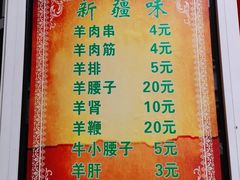 新疆味
羊肉串 4元
羊肉筋 4元
羊排 5元
羊腰子 20元
羊肾 10元
羊鞭 20元
牛小腰子 5元
羊肝 3元